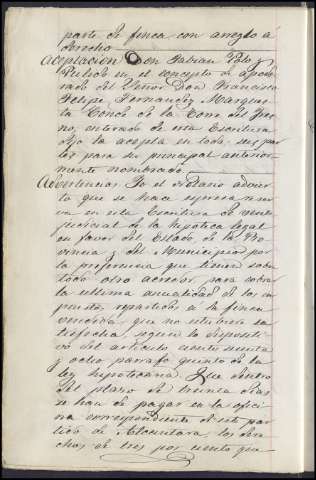 parte de finca con arreglo a
derecho
Aceptacion Don Fabian Polo
Pulido en el concepto de apode-
rado del Señor Don Francisco
Felipe Fernandez Marques
la Conde de la Torre del Fres-
no, enterado de esta Escritura
dijo la acepta en todas sus par-
tes para su principal anterior-
mente nombrado
Advertencias Yo el notario advier-
to que se hace reserva
va en esta Escritura de venta
judicial de la hipoteca legal
en favor del Estado de la Pro-
vincia y del Municipio por
la preferencia que tienen sobre
todo otro acredor para cobrar
la ultima anualidad de los im-
puestos repartidos a la finca
vencida que no estubiere sa-
tisfecha segun la dispositi-
va del articulo ciento sesenta
y ocho parrafo quinto de la
ley hipotecaria. Que dentro
del plazo de treinta dias
se han de pagar en la ofici-
na correspondiente de este par-
tido de Alcantara, los dere-
chos de tres por ciento que